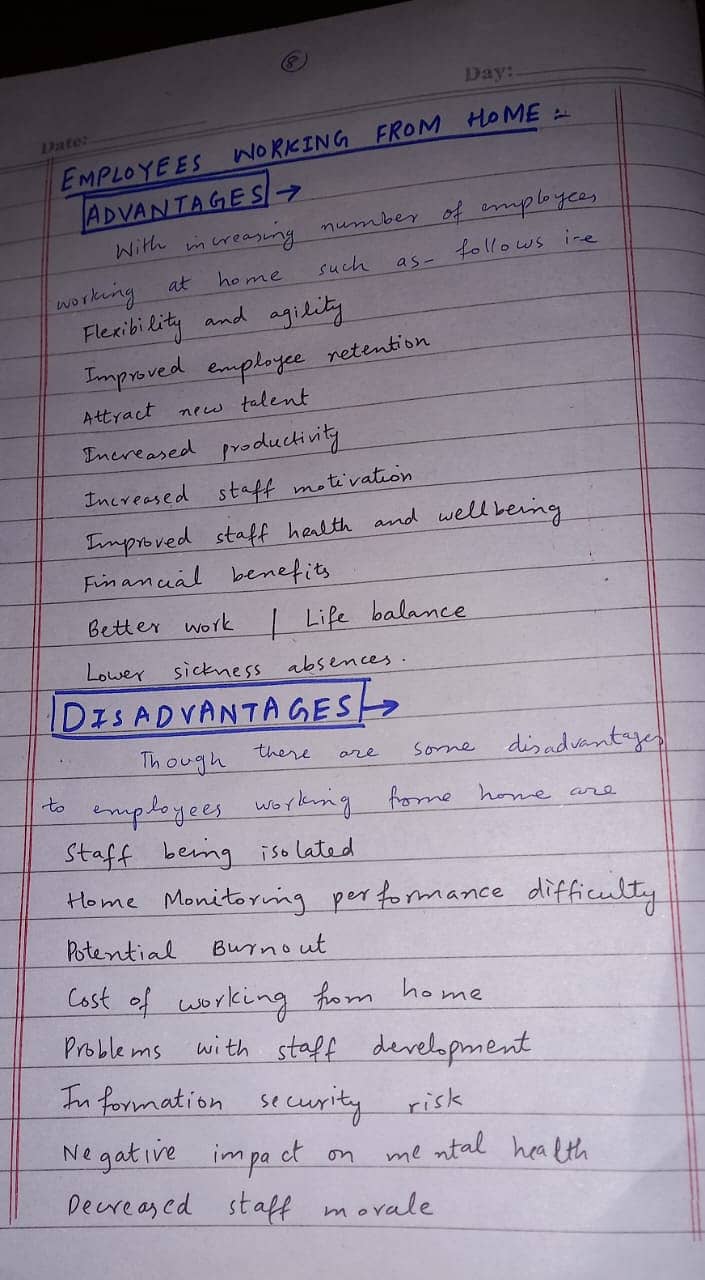 8
Day:
Date:
EMPLOYEES WORKING FROM HOME :-
ADVANTAGES →
With increasing number of employees
working at home such as- follows i-e
Flexibility and agility
Improved employee retention
Attract new talent
Increased productivity
Increased staff motivation
Improved staff health and wellbeing
Financial benefits
Better work | Life balance
Lower sickness absences.
DISADVANTAGES →
Though there are some disadvantages
to employees working frome home are
Staff being isolated
Home Monitoring performance difficulty
Potential Burnout
Cost of working from home
Problems with staff development
Information security risk
Negative impact on mental health
Decreased staff morale